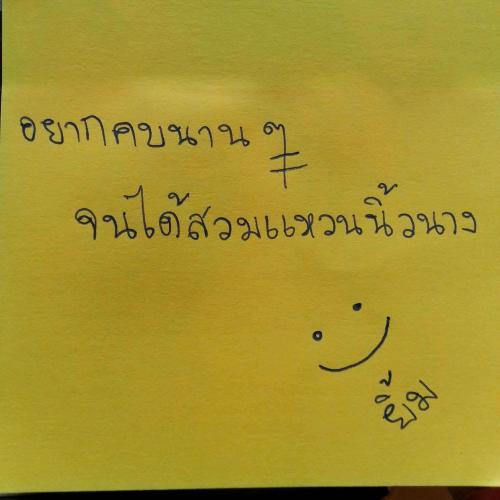 อยากคบนาน ๆ
จนได้สวมแหวนนิ้วนาง
ยิ้ม